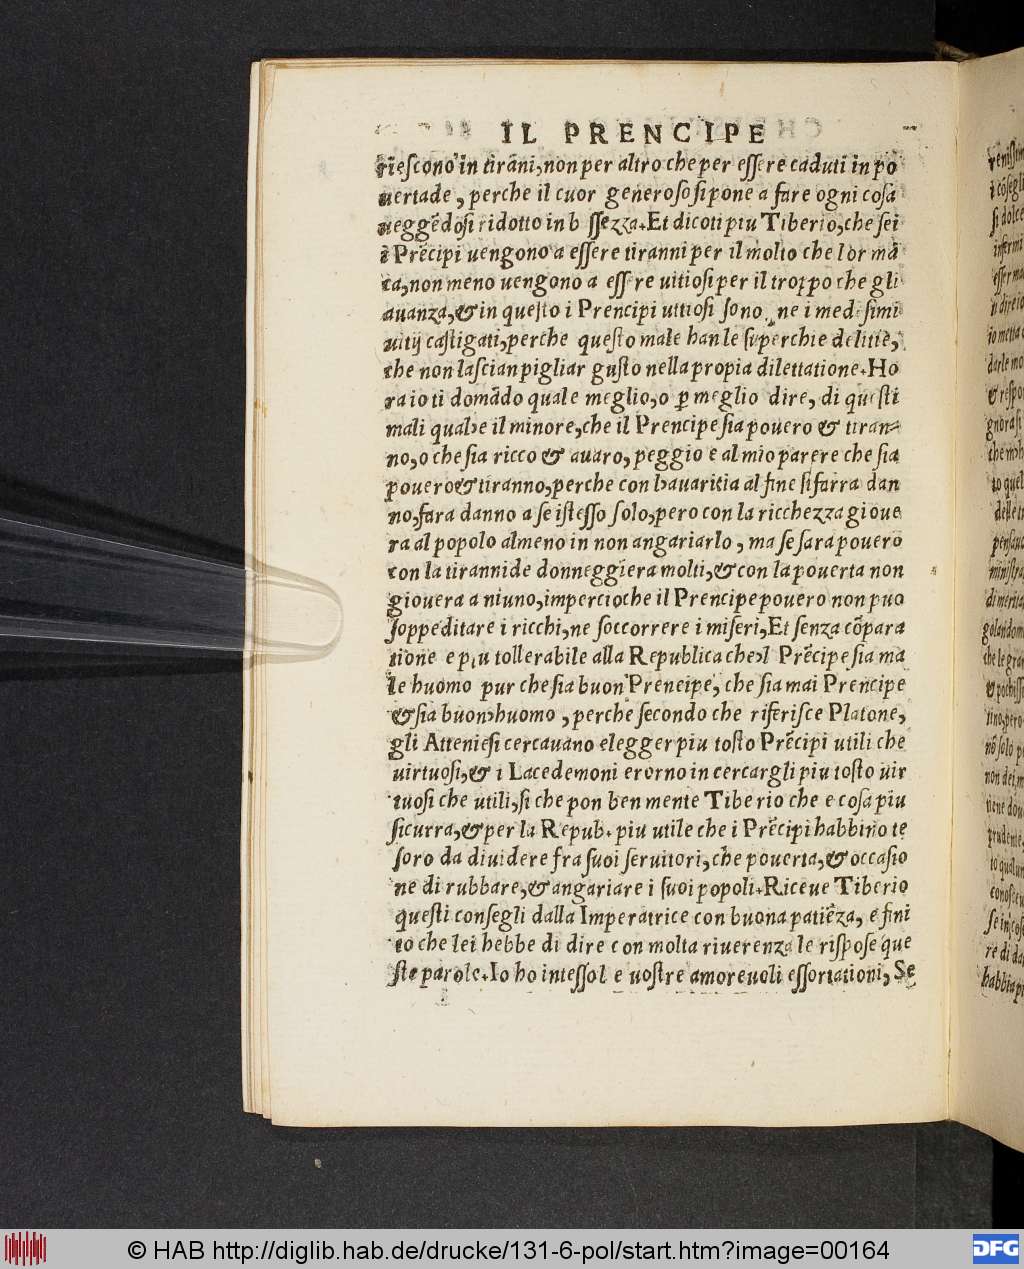 IL PRENCIPE
riescono in tirãni, non per altro che per essere caduti in po
uertade, perche il cuor generoso si pone a fare ogni cosa
ueggẽdosi ridotto in b ssezza. Et dicoti piu Tiberio, che sei
i Prẽcipi uengono a essere tiranni per il molto che lor mã
ca, non meno uengono a essere uitiosi per il troppo che gli
auanza, & in questo i Prencipi uitiosi sono ne i medesimi
uitij castigati, perche questo male han le superchie delitie,
che non lascian pigliar gusto nella propia dilettatione. Ho
ra io ti domãdo quale meglio, o ꝑ meglio dire, di questi
mali qual'e il minore, che il Prencipe sia pouero & tiran-
no, o che sia ricco & auaro, peggio e al mio parere che sia
pouero & tiranno, perche con l'auaritia al fine si farra dan
no, fara danno a se istesso solo, pero con la ricchezza gioue
ra al popolo almeno in non angariarlo, ma se sara pouero
con la tirannide donneggiera molti, & con la pouerta non
giouera a niuno, impercioche il Prencipe pouero non puo
soppeditare i ricchi, ne soccorrere i miseri, Et senza cõpara
tione e piu tollerabile alla Republica che'l Prẽcipe sia ma
le huomo pur che sia buon Preneipe, che sia mai Prencipe
& sia buon'huomo, perche secondo che riferisce Platone,
gli Atteniesi cercauano elegger piu tosto Prẽcipi utili che
uirtuosi, & i Lacedemoni erorno in cercargli piu tosto uir
tuosi che utili, si che pon ben mente Tiberio che e cosa piu
sicurra, & per la Repub. piu utile che i Prẽcipi habbino te
soro da diuidere fra suoi seruitori, che pouerta, & occasio
ne di rubbare, & angariare i suoi popoli. Riceue Tiberio
questi consegli dalla Imperatrice con buona patiẽza, e fini
to che lei hebbe di dire con molta riuerenza le rispose que
ste parole. Io ho intessol e uostre amoreuoli essortationi, Se
© HAB http://diglib.hab.de/drucke/131-6-pol/start.htm?image=00164
DFG